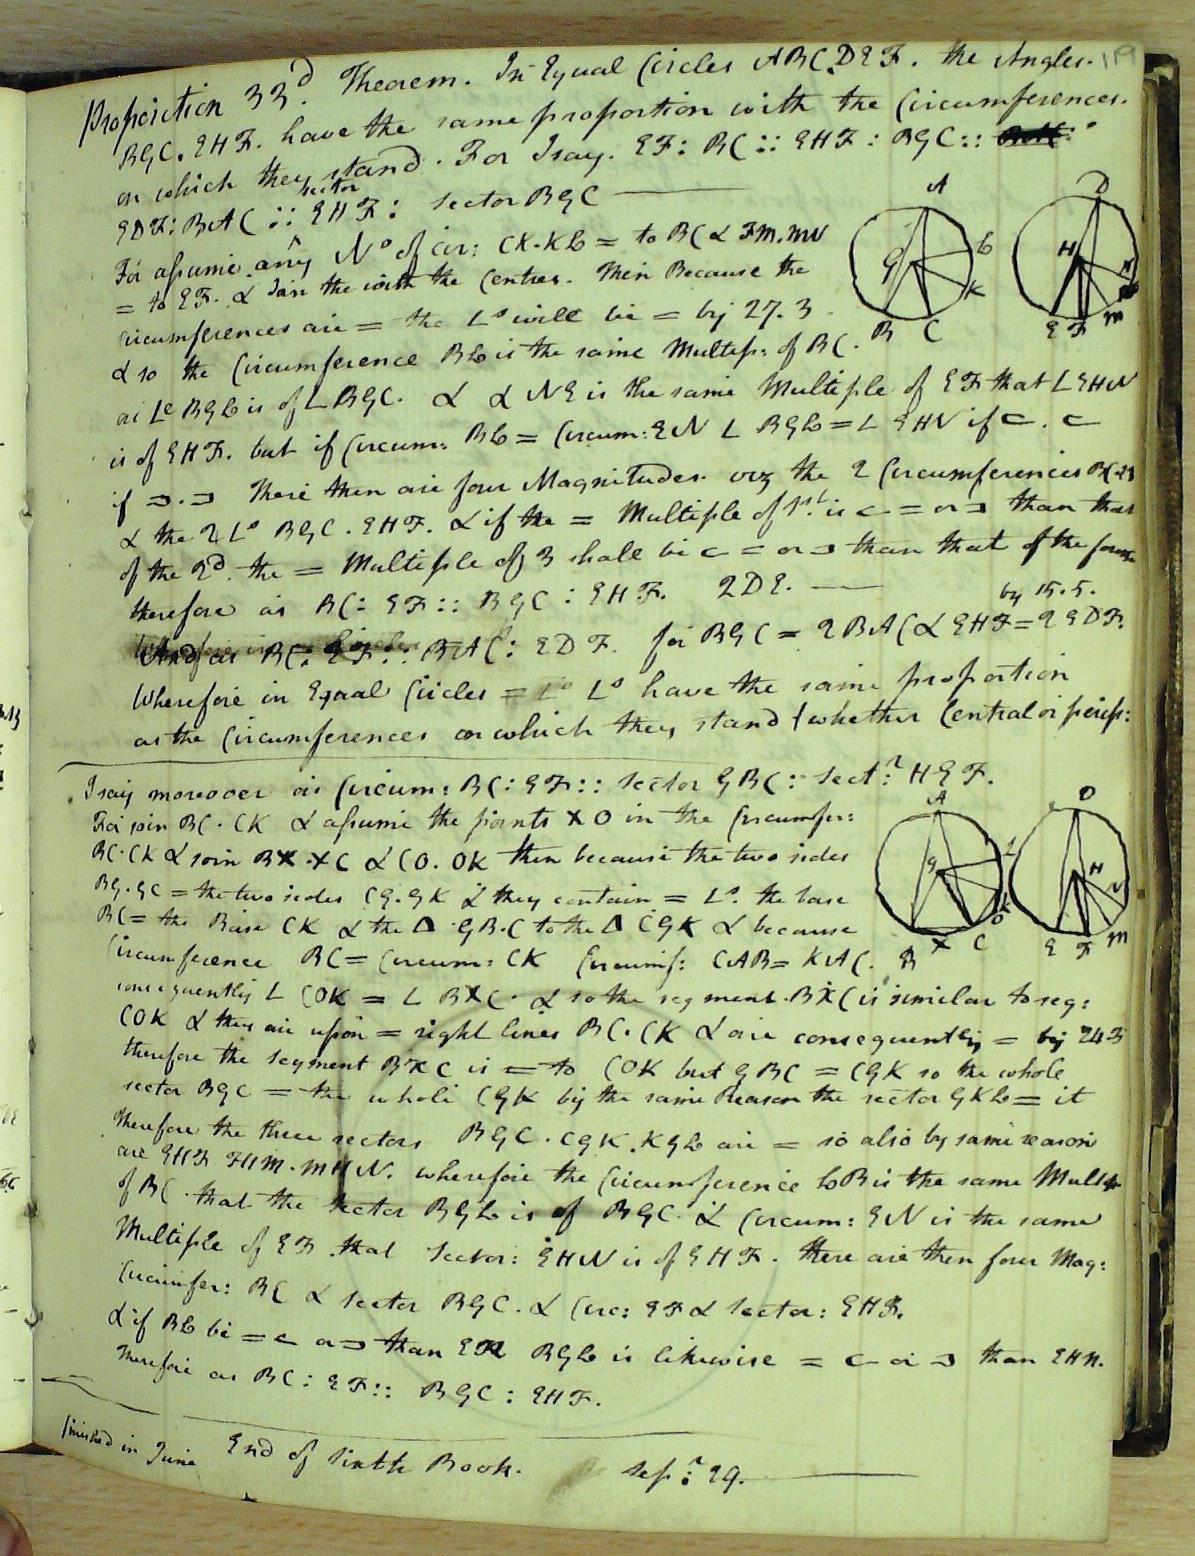 Proposition 33d. Theorem. In Equal Circles ABC. DEF. the Angles. 119
BGC. EHF. have the same proportion with the Circumferences.
on which they stand. For I say. EF: BC :: EHF : BGC::
EDF: BAC :: sector EHF : sector BGC
For assume any No of cir: CK. KL = to BC & FM. MN
= to EF. & Join the with the Centres. Then Because the
circumferences are = the Ls will be = by 27. 3
& so the Circumference BL is the same Multip: of BC.
as Le BGL is of L BGC. & & NE is the same Multiple of EF that L EHN
is of EHF. but if Circum: BL = Circum: EN L BGL = L EHN if ⊂. ⊂
if ⊃. ⊃ There then are four Magnitudes. viz the 2 Circumferences BC
& the 2 Ls BGC. EHF. & if the = Multiple of 1st. is ⊂ = or ⊃ than that
of the 2d. the = Multiple of 3 shall be ⊂ = or ⊃ than that of the four
therefore as BC: EF:: BGC : EHF. QDE. by 15. 5.
And as BC: EF:: BAC: EDF. for BGC = 2 BAC & EHF = 2 EDF.
Wherefore in Equal Circles = Ls have the same proportion
as the Circumferences on which they stand whether Central or perip:
I say moreover as Circum: BC: EF:: sector GBC: sectr HEF.
For join BC. CK & assume the points X O in the Circumfer:
BC. CK & join BX. XC & CO. OK then because the two sides
BG. GC = the two sides CG. GK & they contain = Ls. the base
BC = the Base CK & the Δ GBC to the Δ CGK & because
Circumference BC = Circum: CK Circumf: CAB = KAC.
consequently L COK = L BXC. & so the segment BXC is similar to seg:
COK & they are upon = right lines BC. CK & are consequently = by 24 3
therefore the segment BXC is = to COK but GBC = CGK so the whole
sector BGC = the whole CGK by the same Reason the sector GKL = it
Therefore the three sectors BGC. CGK. KGL are = so also by same reason
are EHF FHM. MHN. wherefore the Circumference LB is the same Mult
of BC. that the sector BGL is of BGC. & Circum: EN is the same
Multiple of EF that sector: EHN is of EHF. there are then four Mag:
Circumfer: BC & sector BGC. & Circ: EF & sector: EHF.
& if BL be = ⊂ or ⊃ than EN BGL is likewise = ⊂ or ⊃ than EHN.
Therefore as BC: EF:: BGC: EHF.
finished in June End of Sixth Book. Sepr: 29.
A
G
L
K
B
C
D
H
N
M
E
F
A
G
L
K
O
B
X
C
D
H
N
M
E
F